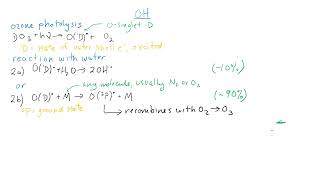 OH
ozone photolysis O-singlet D
1) O₃ + hν → O('D)• + O₂
'D = state of outer shell e⁻, excited
reaction with water
2a) O('D)• + H₂O → 2OH• (~10%)
or any molecule, usually N₂ or O₂
2b) O('D)• + M → O(³P)• + M (~90%)
³P = ground state ↳ recombines with O₂ → O₃